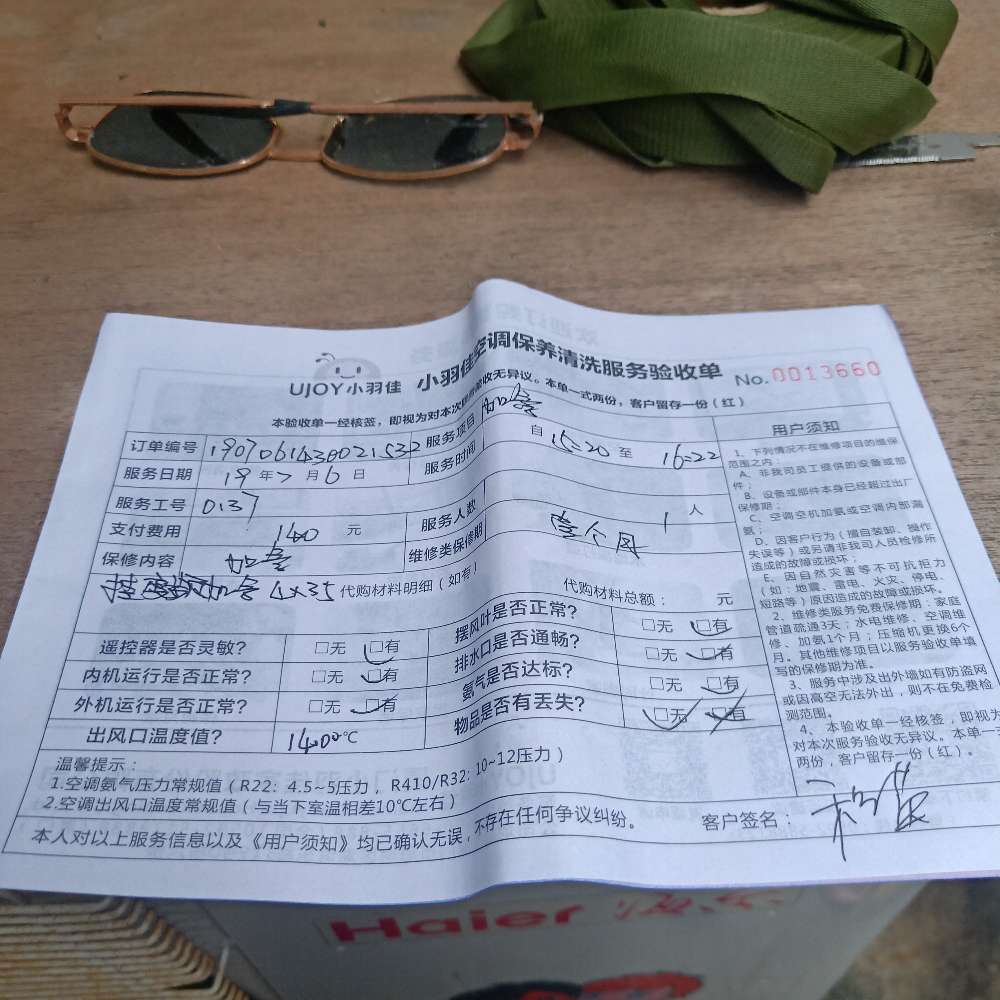 UJOY小羽佳 小羽佳空调保养清洗服务验收单 No.0013660
本验收单一经核签，即视为对本次服务验收无异议。本单一式两份，客户留存一份（红）
订单编号 1907061430021532 服务项目 加氨
服务日期 19年7月6日 服务时间 自15=20至16=22
服务工号 0137
支付费用 140元 服务人数 1人
保修内容 加氨 维修类保修期 壹个月
加氨 4×35 代购材料明细（如有） 代购材料总额： 元
遥控器是否灵敏？ □无 □有 摆风叶是否正常？ □无 □有
内机运行是否正常？ □无 □有 排水口是否通畅？ □无 □有
外机运行是否正常？ □无 □有 氨气是否达标？ □无 □有
出风口温度值？ 1400℃ 物品是否有丢失？ □无 □有
温馨提示：
1.空调氨气压力常规值（R22: 4.5~5压力，R410/R32: 10~12压力）
2.空调出风口温度常规值（与当下室温相差10℃左右）
本人对以上服务信息以及《用户须知》均已确认无误，不存在任何争议纠纷。 客户签名：
用户须知
1、下列情况不在维修项目的维保
范围之内
A、非我司员工提供的设备或部
件；
B、设备或部件本身已经超过出厂
保修期；
C、空调空机加氨或空调内部漏
氨；
D、因客户行为（擅自装卸、操作
失误等）或另请非我司人员检修所
造成的故障或损坏；
E、因自然灾害等不可抗拒力
（如：地震、雷电、火灾、停电、
短路等）原因造成的故障或损坏。
2、维修类服务免费保修期：家庭
管道疏通3天；水电维修、空调维
修、加氨1个月；压缩机更换6个
月。其他维修项目以服务验收单填
写的保修期为准。
3、服务中涉及出外墙如有防盗网
或因高空无法外出，则不在免费检
测范围。
4、本验收单一经核签，即视为
对本次服务验收无异议。本单一式
两份，客户留存一份（红）。
Haier 海尔